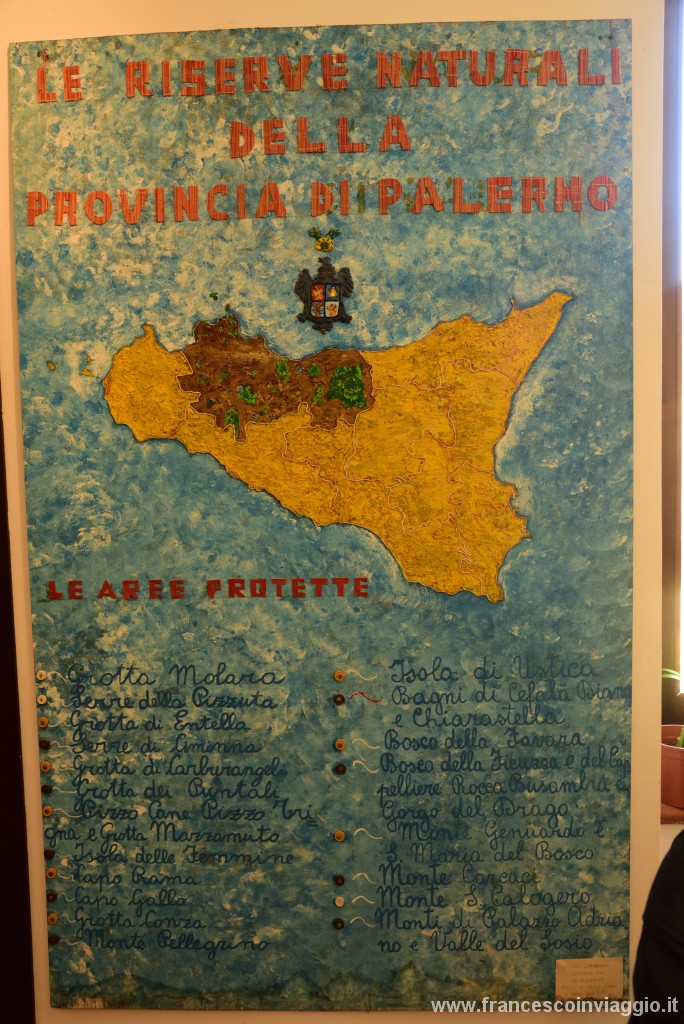 LE RISERVE NATURALI
DELLA
PROVINCIA DI PALERMO
LE AREE PROTETTE
Grotta Molara
Serre della Pizzuta
Grotta di Entella
Serre di Ciminna
Grotta di Carburangeli
Grotta dei Puntali
Pizzo Cane Pizzo Tri=
gna e Grotta Mazzamuto
Isola delle Femmine
Capo Rama
Capo Gallo
Grotta Conza
Monte Pellegrino
Isola di Ustica
Bagni di Cefalà Diana
e Chiarastella
Bosco della Favara
Bosco della Ficuzza e del Cap
pelliere Rocca Busambra e
Gorgo del Drago
Monte Genuardo e
S. Maria del Bosco
Monte Carcaci
Monte S. Calogero
Monti di Palazzo Adria
no e Valle del Sosio
www.francescoinviaggio.it